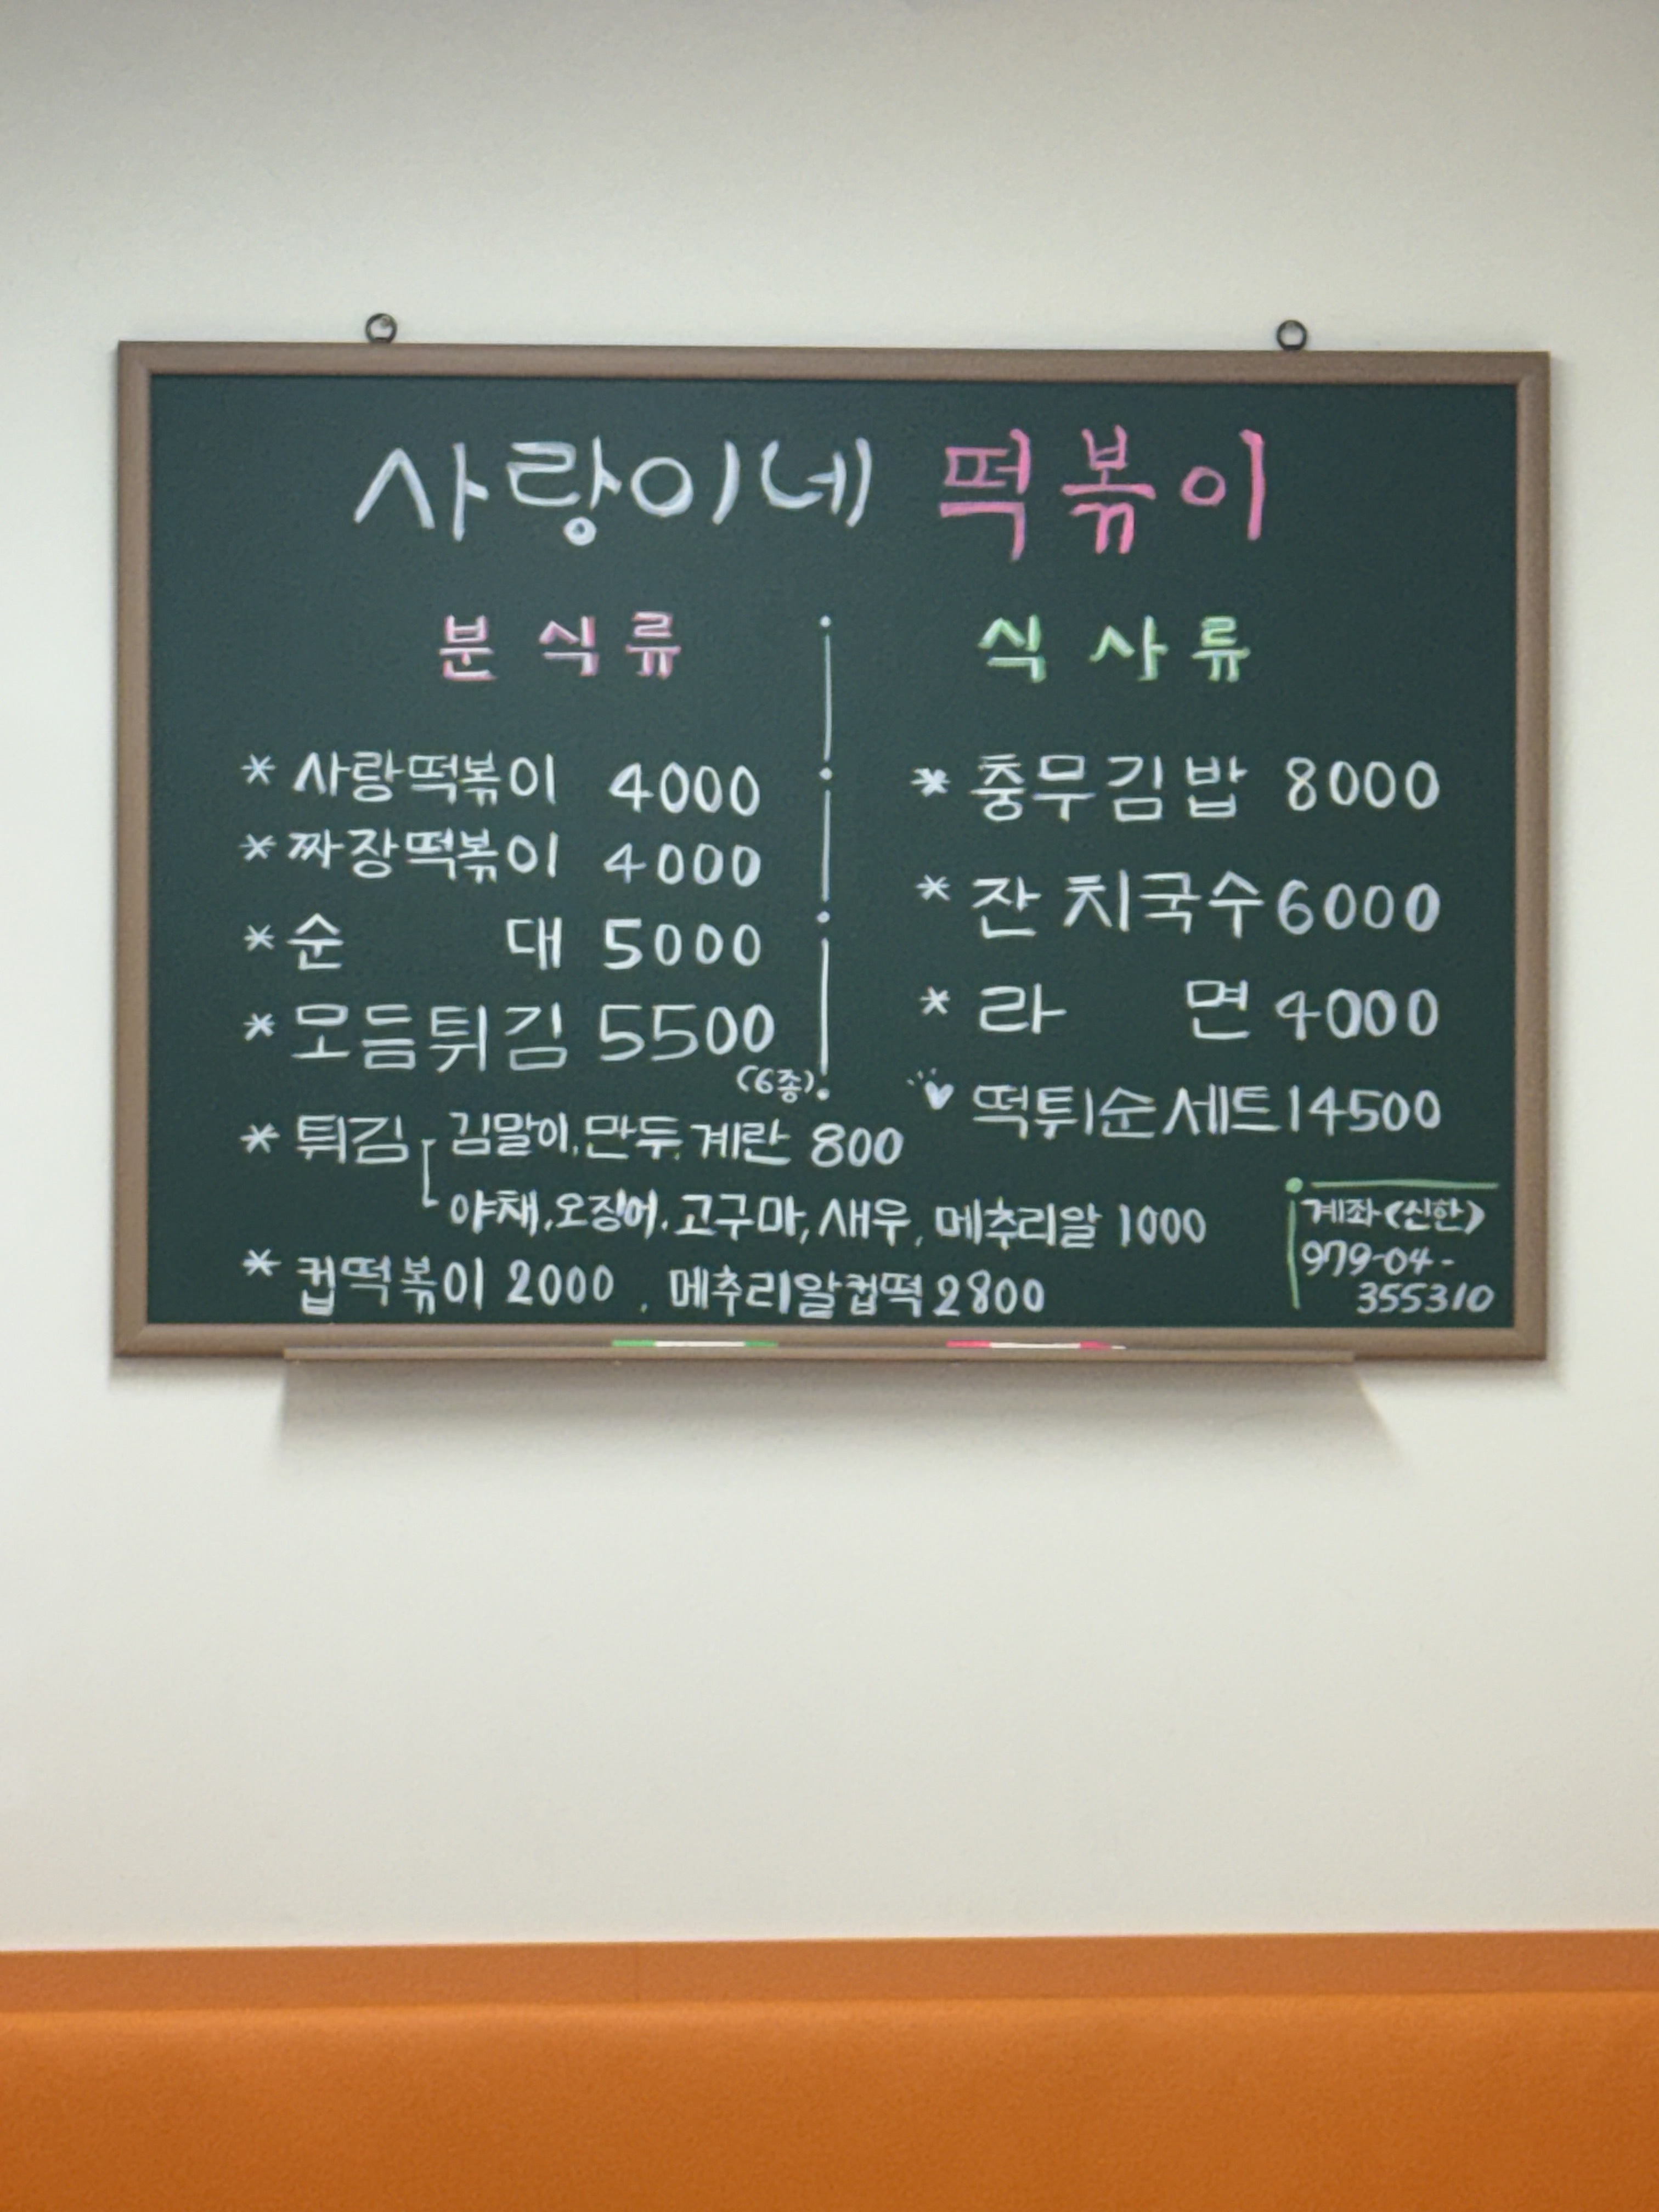 사랑이네 떡볶이
분식류
* 사랑떡볶이 4000
* 짜장떡볶이 4000
* 순 대 5000
* 모듬튀김 5500
(6종)
* 튀김 김말이, 만두, 계란 800
야채, 오징어, 고구마, 새우, 메추리알 1000
* 컵떡볶이 2000, 메추리알컵떡 2800
식사류
* 충무김밥 8000
* 잔치국수 6000
* 라 면 4000
떡튀순세트 14500
계좌(신한)
979-04-
355310